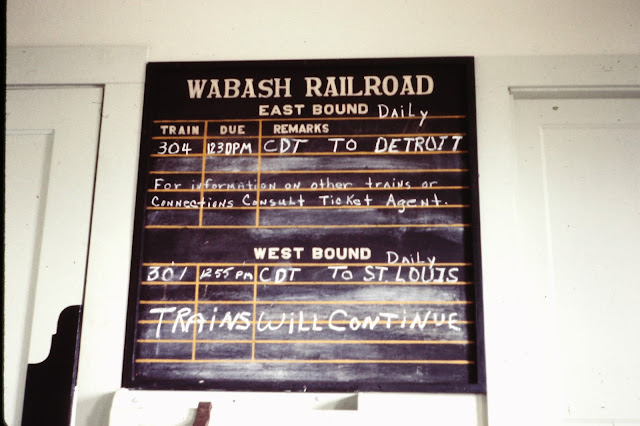 WABASH RAILROAD
EAST BOUND Daily
TRAIN DUE REMARKS
304 1230PM CDT TO DETROIT
For information on other trains or
Connections Consult Ticket Agent.
WEST BOUND Daily
301 1255 PM CDT TO ST. LOUIS
TRAINS WILL CONTINUE